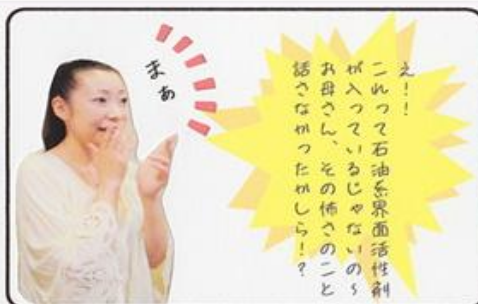 え！！
これって石油系界面活性剤
が入っているじゃないの～
お母さん、その怖さのこと
話さなかったかしら！？
まぁ